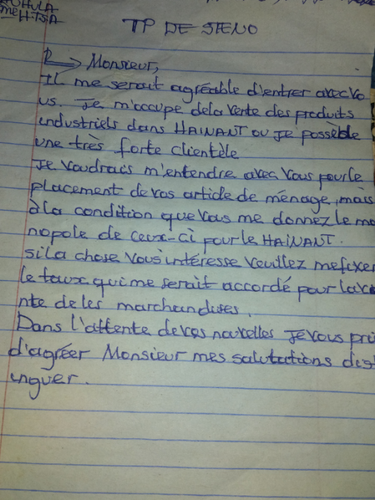 TP DE STENO
Monsieur,
Il me serait agréable d'entrer avec vo
us. Je m'occupe de la vente des produits
industriels dans HAINANT où je possède
une très forte clientèle
Je voudrais m'entendre avec vous pour le
placement de vos article de ménage, mais
à la condition que vous me donnez le mo
nopole de ceux-ci pour le HAINANT.
si la chose vous intéresse veuillez me fixer
le taux qui me serait accordé pour la ve
nte de les marchandises.
Dans l'attente de vos nouvelles Je vous pri
d'agréer Monsieur mes salutations dist
inguer.